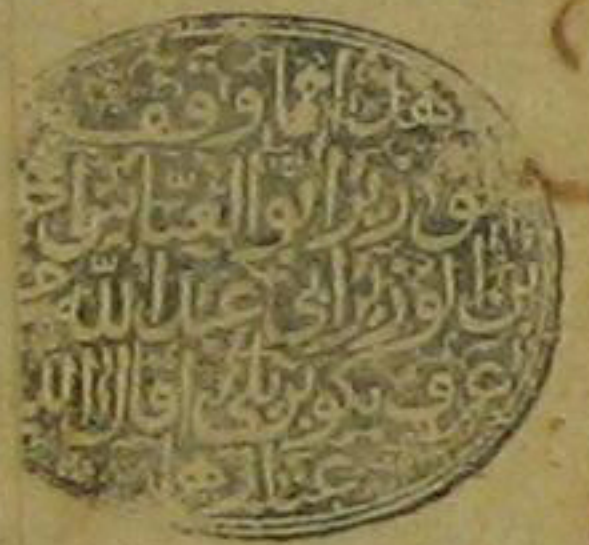 هذا مما وقفه
الوزير ابو العباس
بن الوزير ابي عبد الله
عرف بكوبريلي اقال الله
عثارهما